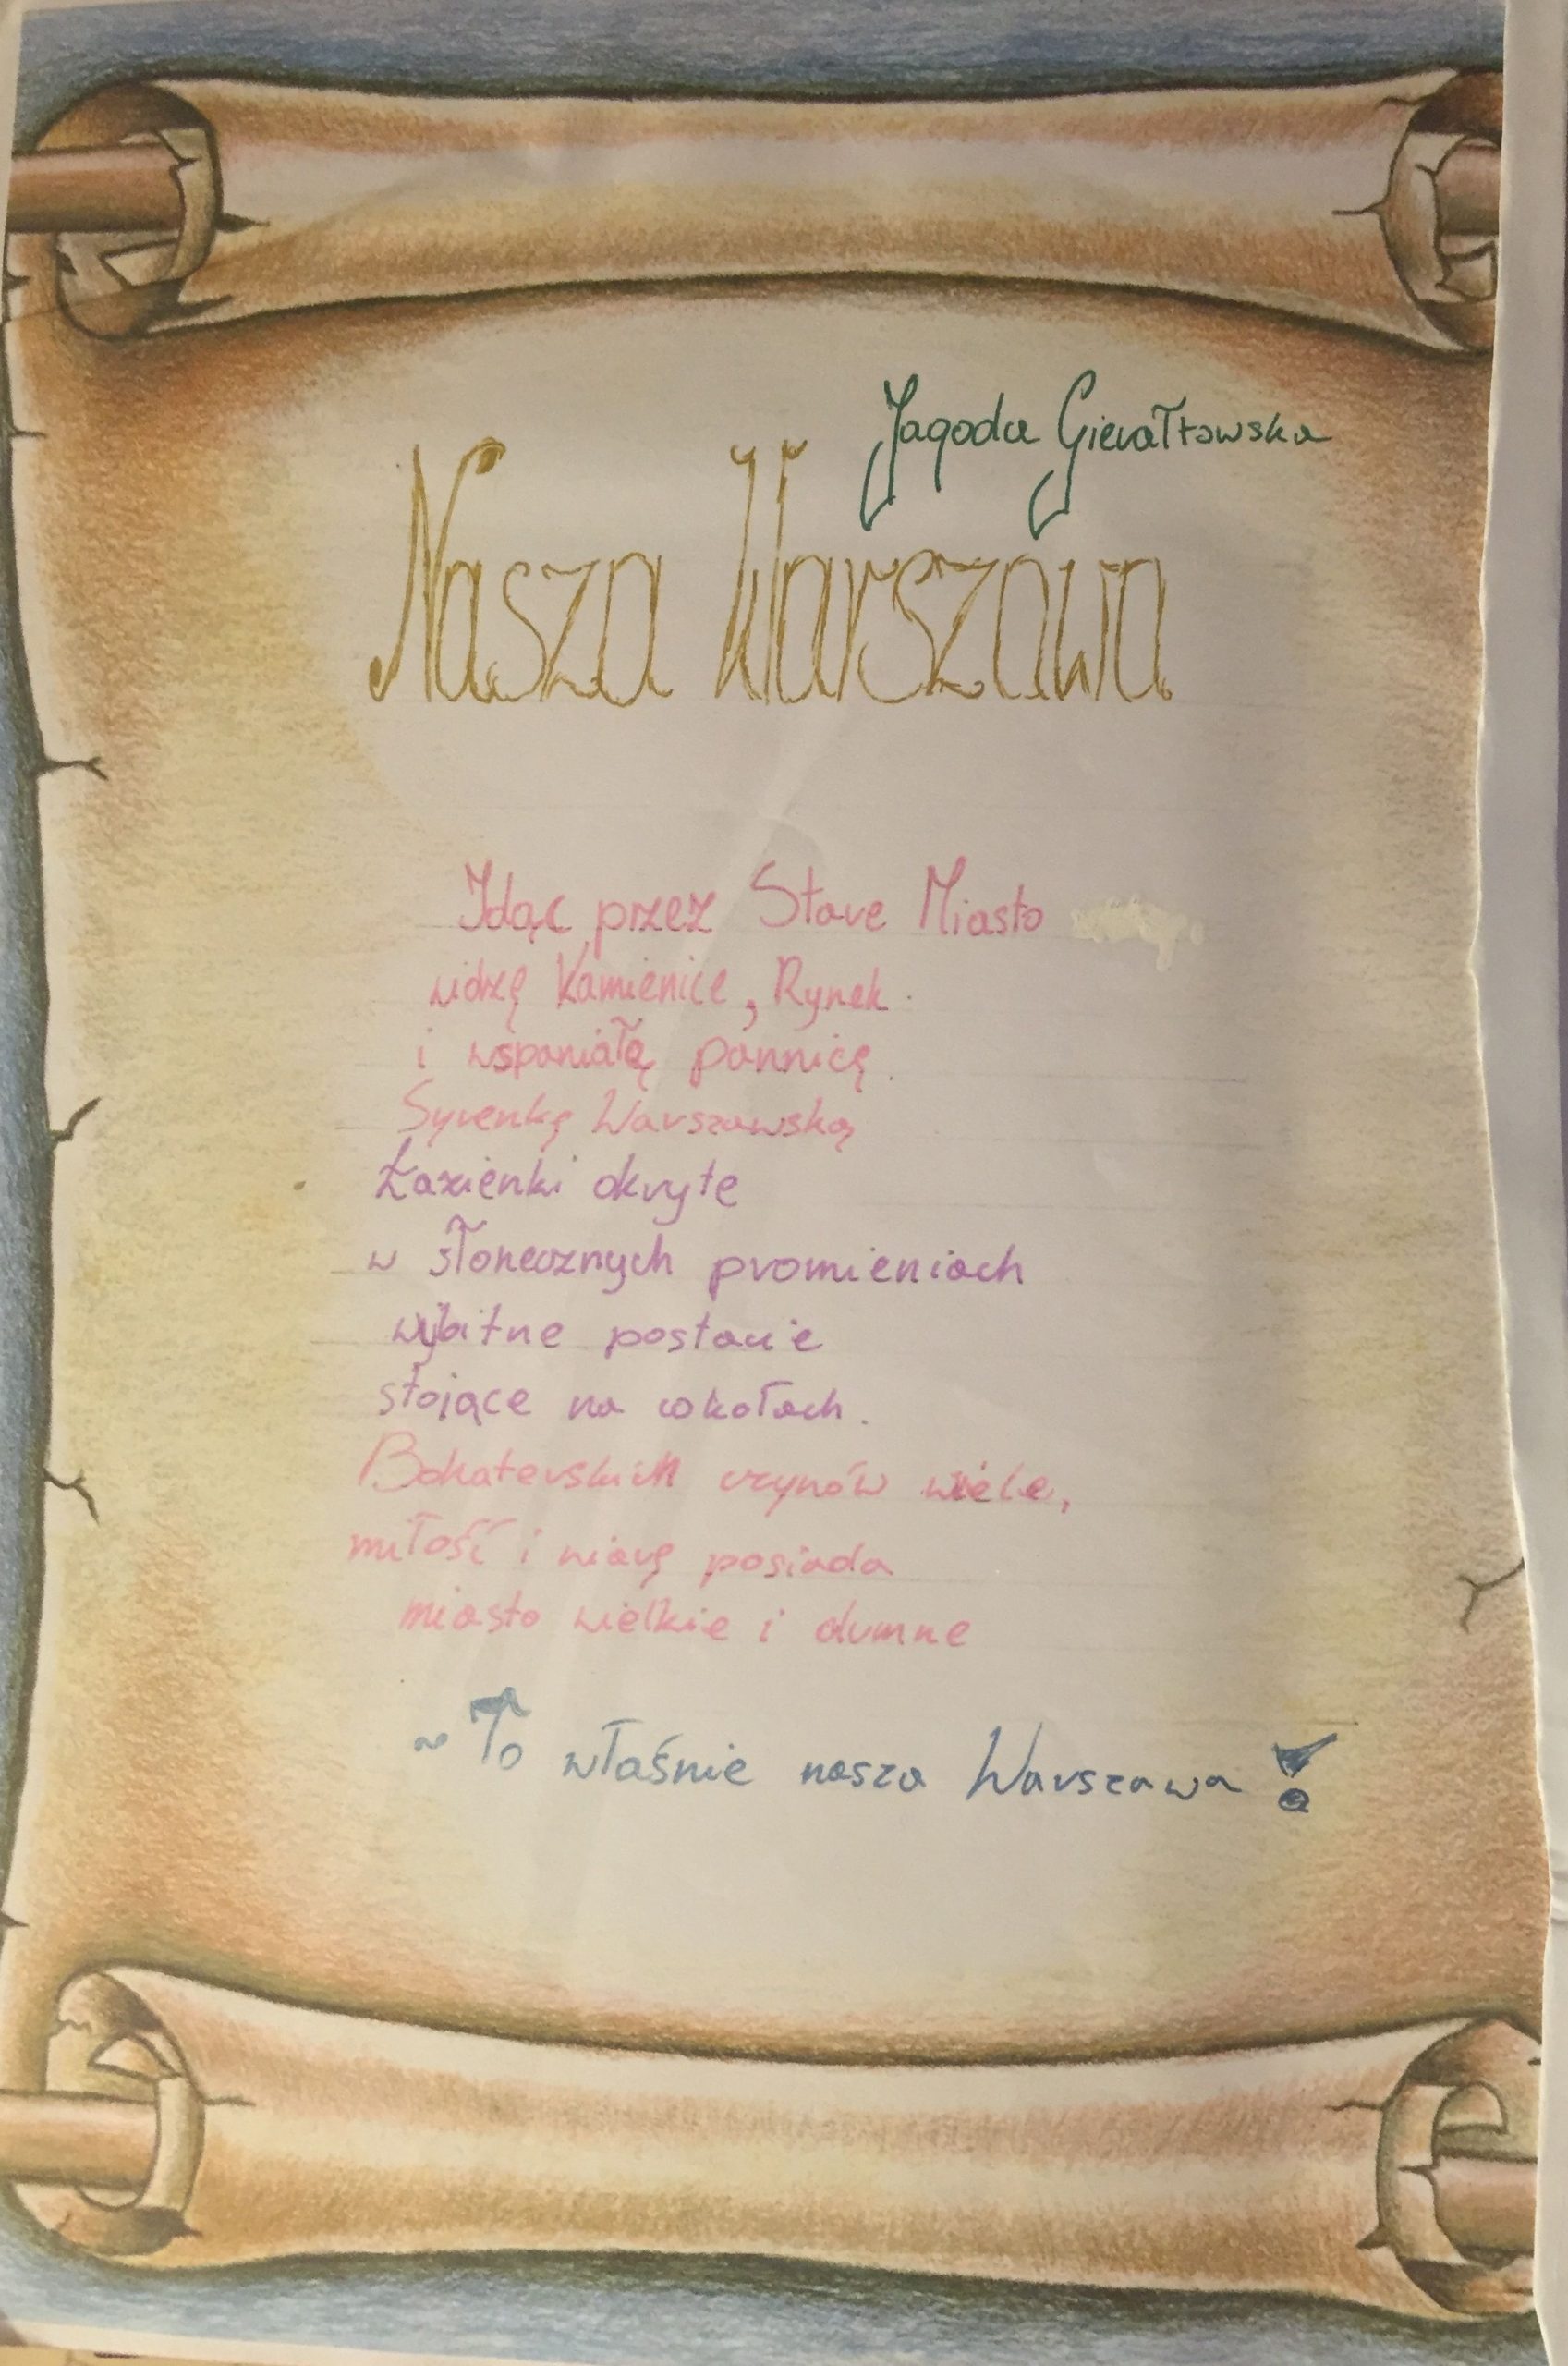 Jagoda Gierałtowska
Nasza Warszawa
Idąc przez Stare Miasto
widzę Kamienice, Rynek
i wspaniałą pannicę
Syrenkę Warszawską
Łazienki okryte
w słonecznych promieniach
wybitne postacie
stojące na cokołach.
Bohaterskich czynów wiele,
miłość i wiarę posiada
miasto wielkie i dumne
~ To właśnie nasza Warszawa!